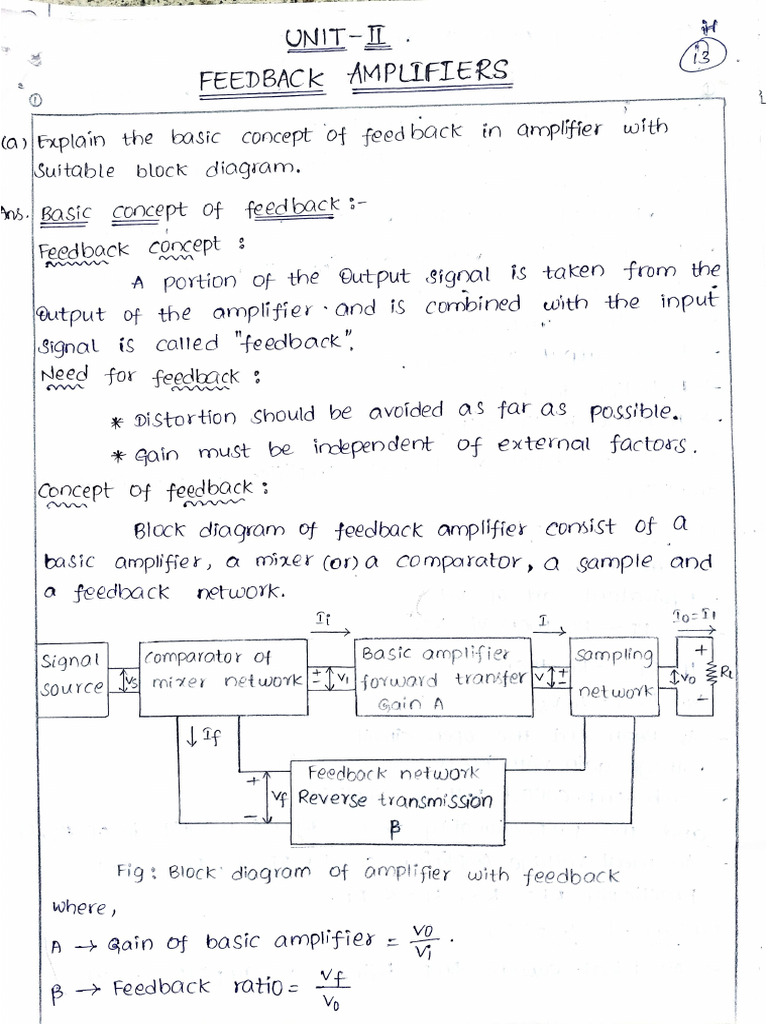 UNIT-II.
13
FEEDBACK AMPLIFIERS
①
(a) Explain the basic concept of feedback in amplifier with
suitable block diagram.
Ans. Basic concept of feedback :-
Feedback concept :
A portion of the output signal is taken from the
output of the amplifier and is combined with the input
signal is called "feedback".
Need for feedback :
* Distortion should be avoided as far as possible.
* Gain must be independent of external factors.
Concept of feedback :
Block diagram of feedback amplifier consist of a
basic amplifier, a mixer (or) a comparator, a sample and
a feedback network.
Ii I Io=I1
Signal
source
Vs
Comparator of
mixer network
+ - Vi
Basic amplifier
forward transfer
Gain A
V + -
Sampling
network
Vo
+ -
RL
↓ If
+
Vf
-
Feedback network
Reverse transmission
β
Fig: Block diagram of amplifier with feedback
where,
A → Gain of basic amplifier = Vo/Vi .
β → Feedback ratio = Vf/Vo